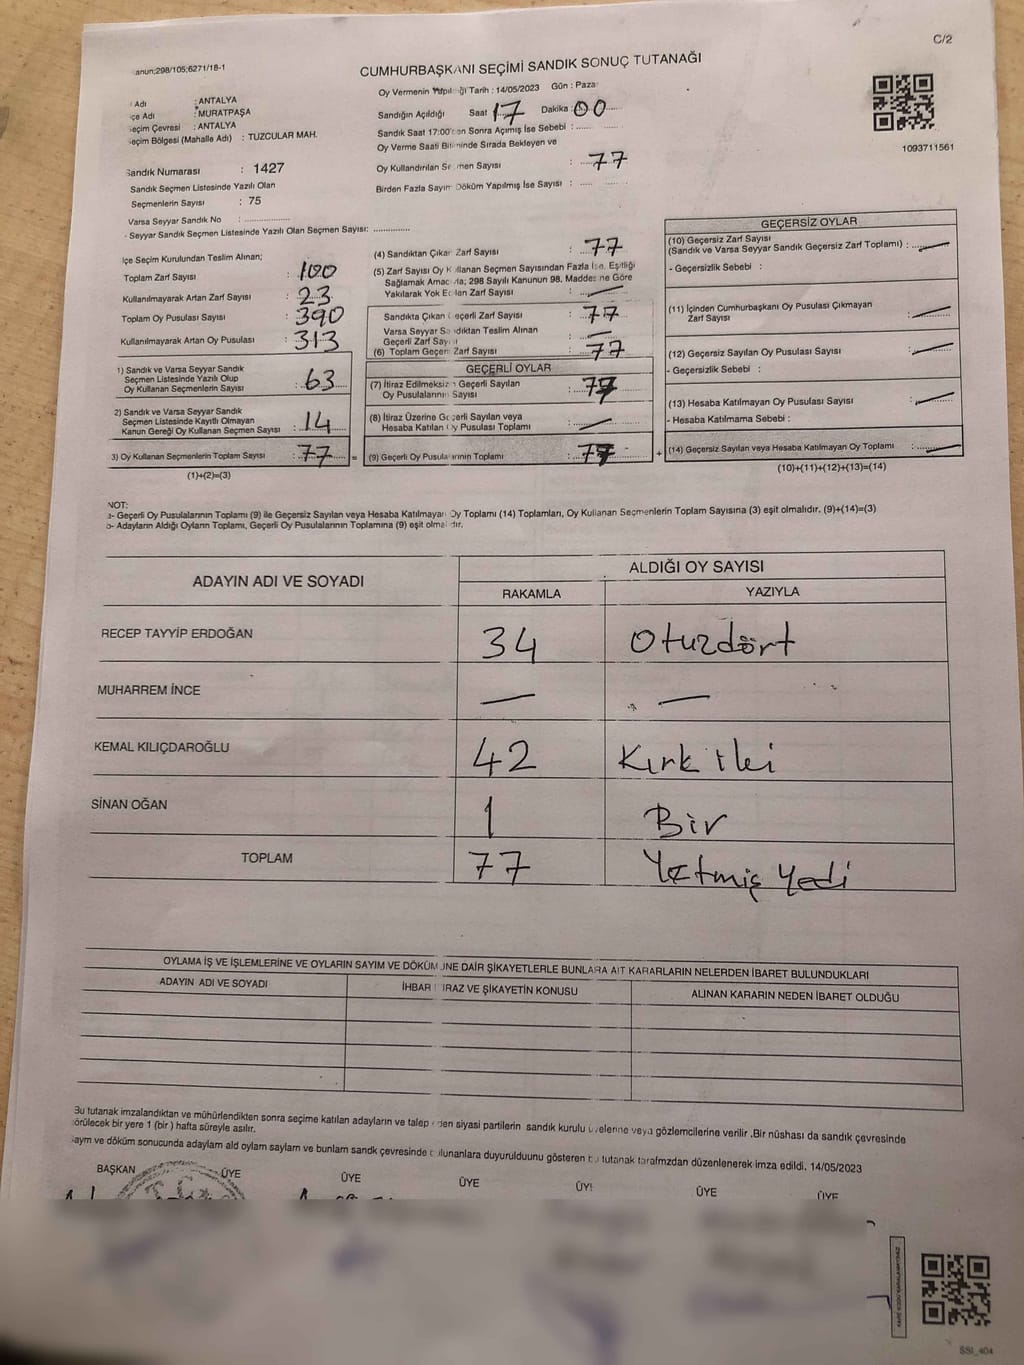 C/2
anun;298/105;6271/18-1
CUMHURBAŞKANI SEÇİMİ SANDIK SONUÇ TUTANAĞI
Adı : ANTALYA
çe Adı : MURATPAŞA
eçim Çevresi : ANTALYA
eçim Bölgesi (Mahalle Adı) : TUZCULAR MAH.
Sandık Numarası : 1427
Sandık Seçmen Listesinde Yazılı Olan
Seçmenlerin Sayısı : 75
Varsa Seyyar Sandık No :
Seyyar Sandık Seçmen Listesinde Yazılı Olan Seçmen Sayısı:
Oy Vermenin Tarih : 14/05/2023 Gün : Paza
Sandığın Açıldığı Saat 17 Dakika : 00
Sandık Saat 17:00 Sonra Açmış İse Sebebi :
Oy Verme Saati Sırada Bekleyen ve
Oy Kullandırılan Sayısı : 77
Birden Fazla Sayım Döküm Yapılmış İse Sayısı :
1093711561
lçe Seçim Kurulundan Teslim Alınan;
Toplam Zarf Sayısı : 100
Kullanılmayarak Artan Zarf Sayısı : 23
Toplam Oy Pusulası Sayısı : 390
Kullanılmayarak Artan Oy Pusulası : 313
1) Sandık ve Varsa Seyyar Sandık
Seçmen Listesinde Yazılı Olup
Oy Kullanan Seçmenlerin Sayısı : 63
2) Sandık ve Varsa Seyyar Sandık
Seçmen Listesinde Kayıtlı Olmayan
Kanun Gereği Oy Kullanan Seçmen Sayısı : 14
3) Oy Kullanan Seçmenlerin Toplam Sayısı : 77 =
(1)+(2)=(3)
(4) Sandıktan Çıkan Zarf Sayısı : 77
(5) Zarf Sayısı Oy Kullanan Seçmen Sayısından Fazla İse, Eşitliği
Sağlamak 298 Sayılı Kanunun 98. Göre
Yakılarak Yok Zarf Sayısı : —
Sandıkta Çıkan Geçerli Zarf Sayısı : 77
Varsa Seyyar Sandıktan Teslim Alınan
Geçerli Zarf : —
(6) Toplam Geçerli Zarf Sayısı : 77
GEÇERLİ OYLAR
(7) İtiraz Edilmeksizin Geçerli Sayılan
Oy Pusulalarının Sayısı : 77
(8) İtiraz Üzerine Geçerli Sayılan veya
Hesaba Katılan Oy Pusulası Toplamı : —
(9) Geçerli Oy Pusulalarının Toplamı : 77 +
GEÇERSİZ OYLAR
(10) Geçersiz Zarf Sayısı
(Sandık ve Varsa Seyyar Sandık Geçersiz Zarf Toplamı) : —
- Geçersizlik Sebebi :
(11) İçinden Cumhurbaşkanı Oy Pusulası Çıkmayan
Zarf Sayısı : —
(12) Geçersiz Sayılan Oy Pusulası Sayısı : —
- Geçersizlik Sebebi :
(13) Hesaba Katılmayan Oy Pusulası Sayısı : —
- Hesaba Katılmama Sebebi :
(14) Geçersiz Sayılan veya Hesaba Katılmayan Oy Toplamı : —
(10)+(11)+(12)+(13)=(14)
NOT:
a- Geçerli Oy Pusulalarının Toplamı (9) ile Geçersiz Sayılan veya Hesaba Katılmayan Oy Toplamı (14) Toplamları, Oy Kullanan Seçmenlerin Toplam Sayısına (3) eşit olmalıdır. (9)+(14)=(3)
b- Adayların Aldığı Oyların Toplamı, Geçerli Oy Pusulalarının Toplamına (9) eşit olmalıdır.
ADAYIN ADI VE SOYADI
ALDIĞI OY SAYISI
RAKAMLA YAZIYLA
RECEP TAYYİP ERDOĞAN 34 Otuzdört
MUHARREM İNCE — —
KEMAL KILIÇDAROĞLU 42 Kırk iki
SİNAN OĞAN 1 Bir
TOPLAM 77 Yetmiş Yedi
OYLAMA İŞ VE İŞLEMLERİNE VE OYLARIN SAYIM VE DÖKÜMÜNE DAİR ŞİKAYETLERLE BUNLARA AİT KARARLARIN NELERDEN İBARET BULUNDUKLARI
ADAYIN ADI VE SOYADI İHBAR İTİRAZ VE ŞİKAYETİN KONUSU ALINAN KARARIN NEDEN İBARET OLDUĞU
Bu tutanak imzalandıktan ve mühürlendikten sonra seçime katılan adayların ve talep eden siyasi partilerin sandık kurulu üyelerine veya gözlemcilerine verilir .Bir nüshası da sandık çevresinde
örülecek bir yere 1 (bir ) hafta süreyle asılır.
aym ve döküm sonucunda adaylam ald oylam saylam ve bunlam sandk çevresinde bulunanlara duyurulduunu gösteren bu tutanak tarafmzdan düzenlenerek imza edildi. 14/05/2023
BAŞKAN ÜYE ÜYE ÜYE ÜYE ÜYE ÜYE
SSI_404